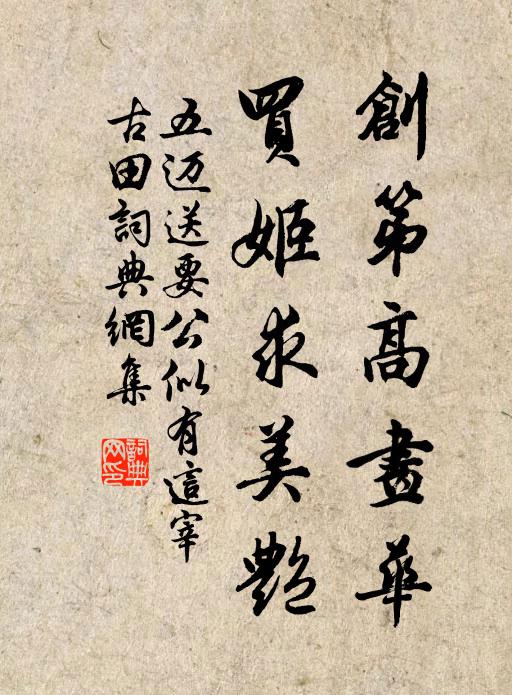 創第高畫華
買姬求美艷
五迈送要公似有這宰
古田詞典網集
詞典
网印